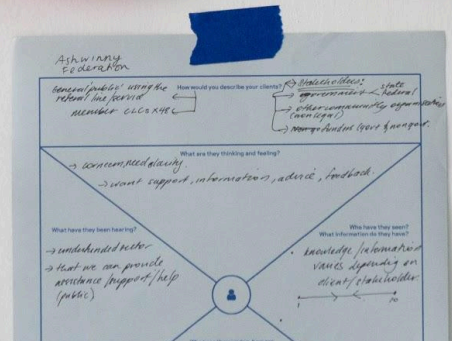 Ashwinny
Federation
How would you describe your clients?
general/public using the
referral line/service
member CLCs x 48
Stakeholders:
government
state
federal
other community organisations
(non legal)
What are they thinking and feeling?
→ concern, need clarity
→ want support, information, advice, feedback.
What have they been hearing?
→ underfunded sector
→ that we can provide
assistance/support/help
(public)
Who have they seen?
What information do they have?
knowledge/information
varies depending on
client/stakeholder
1 10